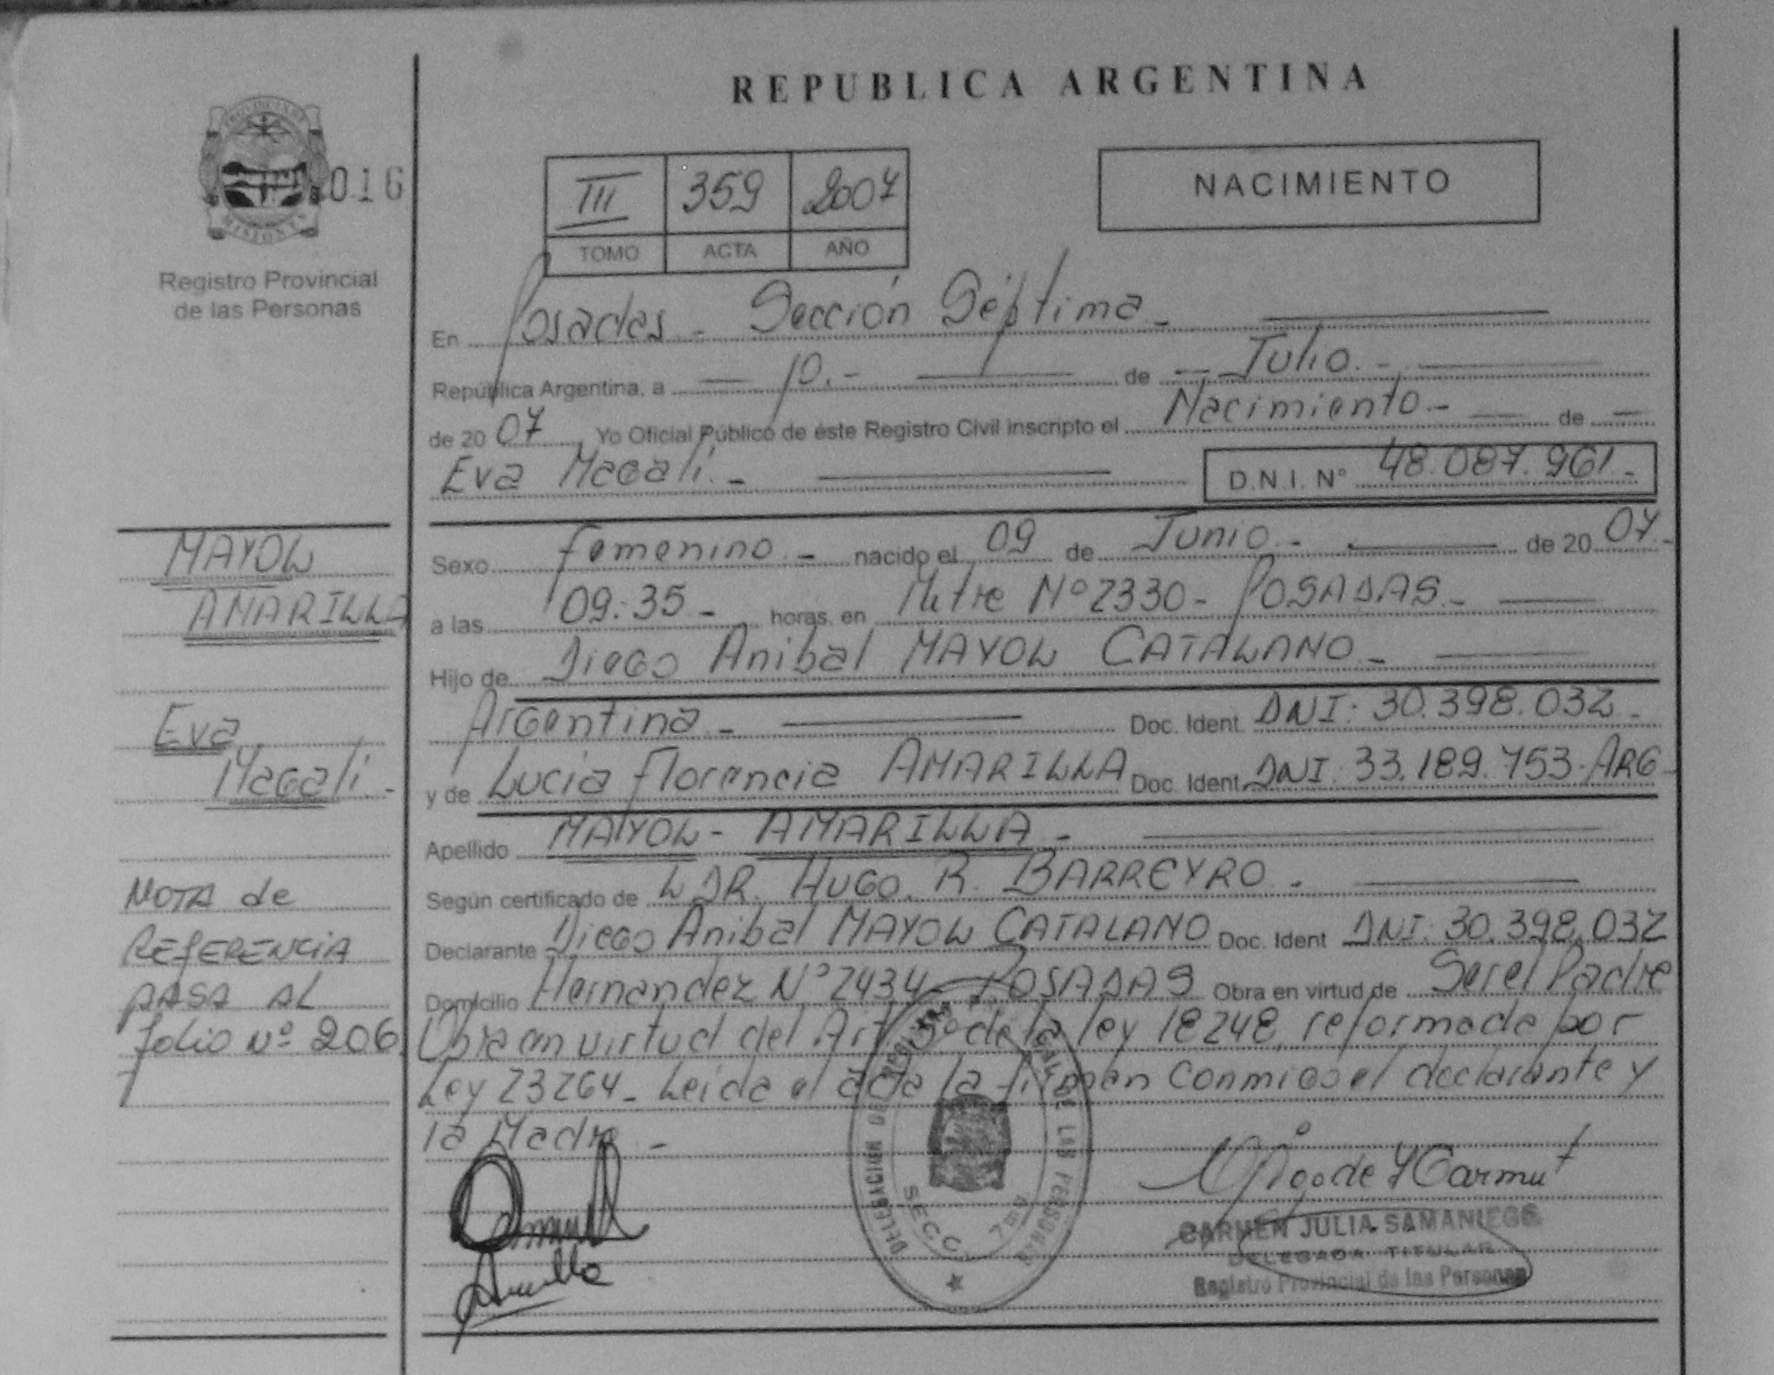 REPUBLICA ARGENTINA
PROVINCIA DE
MISIONES
016
Registro Provincial
de las Personas
III 359 2007
TOMO ACTA AÑO
NACIMIENTO
En Posadas - Sección Séptima -
República Argentina, a - 10.- de - Julio.-
de 20 07, Yo Oficial Público de éste Registro Civil inscripto el Nacimiento - de -
Eva Magalí. - D.N.I. N° 48.087.961.-
Sexo femenino - nacido el 09 de Junio.- de 20 07.-
a las 09:35 - horas. en Mitre N°2330 - POSADAS -
Hijo de Diego Anibal MAYOL CATALANO -
Argentina - Doc. Ident. DNI: 30.398.032 -
y de Lucia Florencia AMARILLA Doc. Ident. DNI: 33.189.753-ARG-
Apellido MAYOL - AMARILLA -
Según certificado de LDR. HUGO. R. BARREYRO -
Declarante Diego Anibal MAYOL CATALANO Doc. Ident DNI: 30.398.032
Domicilio Hernandez N°2434 - POSADAS Obra en virtud de Ser el Padre
Obra en virtud del Art. 5° de la ley 18248, reformada por
Ley 23264 - Leida el acta la firman conmigo el declarante y
la Madre -
MAYOL
AMARILLA
Eva
Magalí. -
NOTA de
REFERENCIA
PASA AL
folio Nº 206
DELEGACION DE LAS PERSONAS
SECC. 7ma
CARMEN JULIA SAMANIEGO
DELEGADA TITULAR
Registro Provincial de las Personas